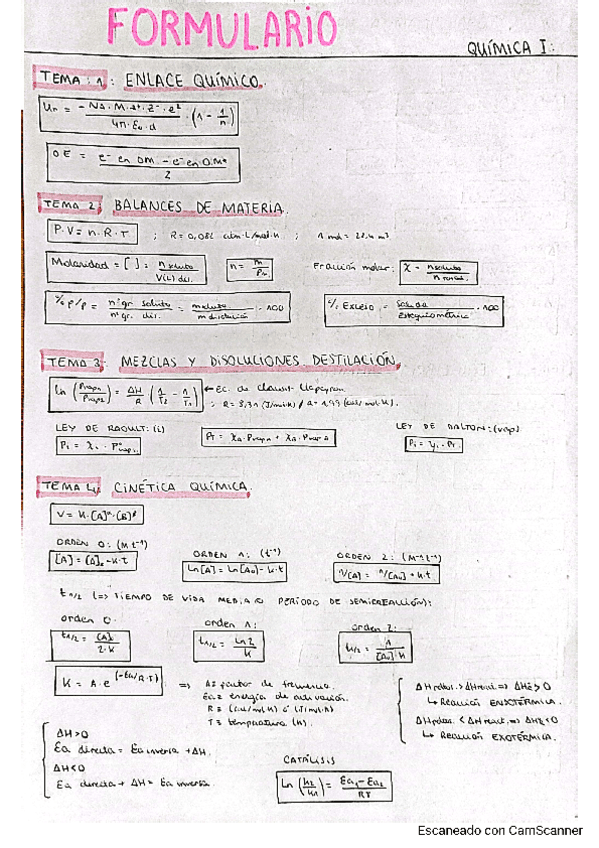 FORMULARIO
QUÍMICA I:
TEMA 1: ENLACE QUÍMICO.
Un = -NA·M·z+·z-·e² / 4π·E₀·d · (1 - 1/n)
OE = e- en OM - e- en OM* / 2
TEMA 2: BALANCES DE MATERIA.
P.V = n.R.T ; R = 0,082 atm·L/mol·K ; 1 mol =
Molaridad = [ ] = n soluto / V(L) dis. n = m / Pm Fracción molar: χ = n soluto / n totales
% P/P = nº gr soluto / nº gr. dis. = m soluto / m disolución · 100 % Exceso = / estequiométrica · 100
TEMA 3: MEZCLAS Y DISOLUCIONES. DESTILACIÓN.
Ln (Pvap1 / Pvap2) = ΔH / R (1/T2 - 1/T1) ← Ec. de Clausius-Clapeyron
; R = 8,31 (J/mol·K) / R = 1,99 (cal/mol·K).
LEY DE RAOULT: (l) LEY DE DALTON: (vap)
Pi = χi · Pºvapi PT = χA·PvapA + χB·PvapB Pi = yi · PT
TEMA 4: CINÉTICA QUÍMICA.
V = K·[A]α·[B]β
ORDEN 0: (M·t-1) ORDEN 1: (t-1) ORDEN 2: (M-1·t-1)
[A] = [A]₀ - K·t Ln[A] = Ln[A₀] - K·t 1/[A] = 1/[A₀] + K·t
t1/2 (=> TIEMPO DE VIDA MEDIA O PERÍODO DE SEMIREACCIÓN):
orden 0: orden 1: orden 2:
t1/2 = [A]₀ / 2·K t1/2 = Ln 2 / K t1/2 = 1 / [A₀]·K
K = A·e^(-Ea/R·T) => A = factor de frecuencia.
Ea = energía de activación.
R = (cal/mol·K) ó (J/mol·K)
T = temperatura (K).
ΔHprduc. > ΔHreact. => ΔHR > 0
↳ REACCIÓN ENDOTÉRMICA.
ΔHproduc. < ΔHreact. => ΔHR < 0
↳ REACCIÓN EXOTÉRMICA.
ΔH>0
Ea directa = Ea inversa + ΔH.
ΔH<0
Ea directa + ΔH = Ea inversa.
CATÁLISIS
Ln (K2 / K1) = Ea1 - Ea2 / RT
Escaneado con CamScanner